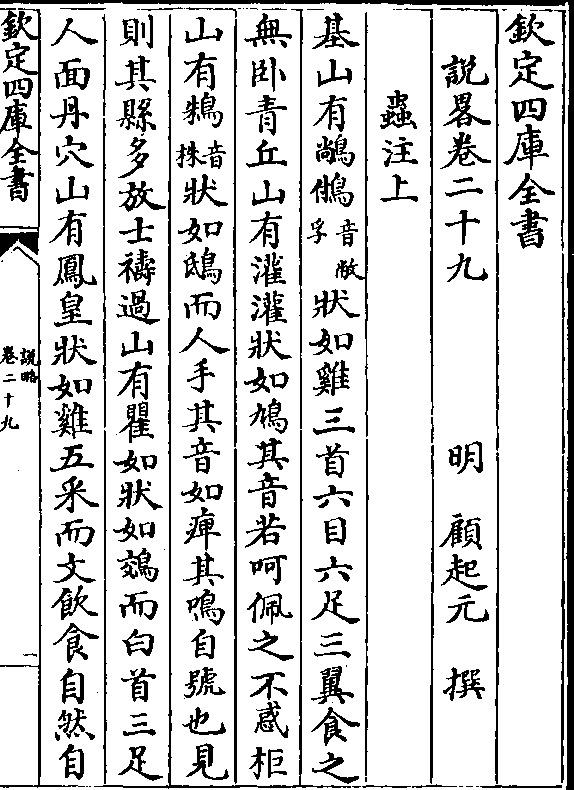 欽定四庫全書
說畧卷二十九 明 顧起元 撰
蟲注上
基山有𪁺䳜音敝孚狀如雞三首六目六足三翼食之
無卧青丘山有灌灌狀如鳩其音若呵佩之不惑柜
山有鴸音株狀如鴟而人手其音如痺其鳴自號也見
則其縣多放士禱過山有瞿如狀如鵁而白首三足
人面丹穴山有鳳皇狀如雞五采而文飲食自然自
欽定四庫全書
說略
卷二十九
一